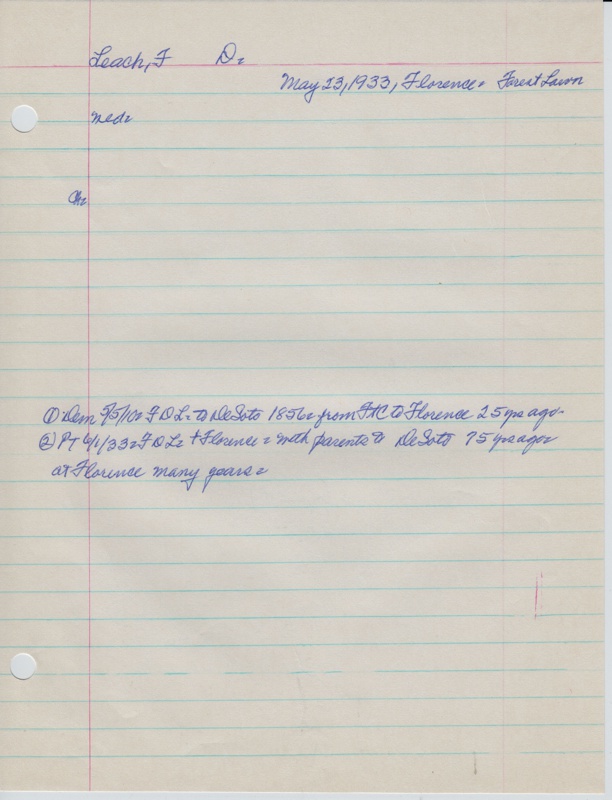 Leach, F D=
May 23, 1933, Florence= Forest Lawn
med=
Ch=
① Dem 5/5/10= F D L= to DeSoto 1856= from FtC to Florence 25 yrs ago-
② PT 6/1/33= F D L= + Florence= with parents to DeSoto 75 yrs ago=
at Florence many years=